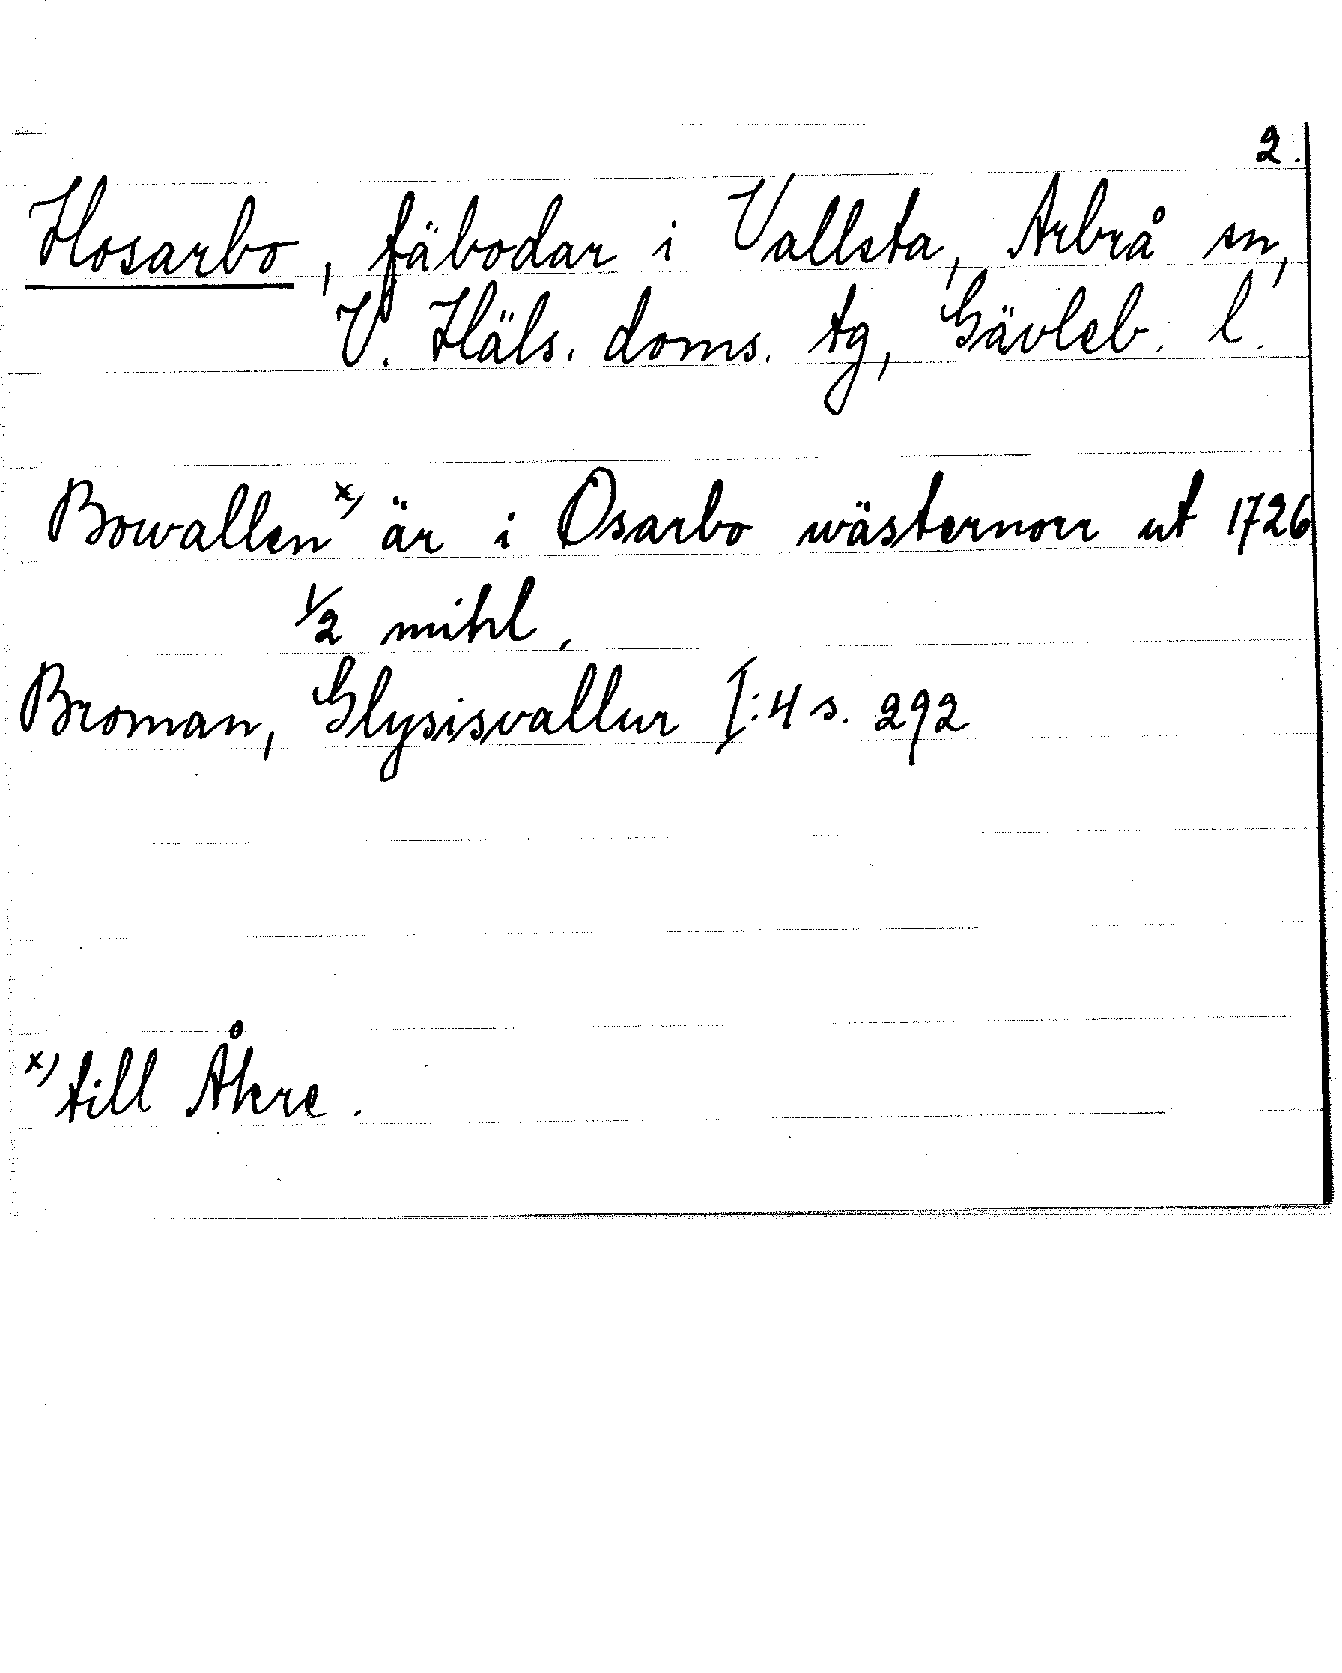 2.
Hosarbo, fäbodar i Vallsta, Arbrå sn,
V. Häls. doms. tg, Gävleb. l.
Bowallen x) är i Osarbo wästernorr ut 1726
1/2 mihl.
Broman, Glysisvallur I:4 s. 292
x) till Åkre.